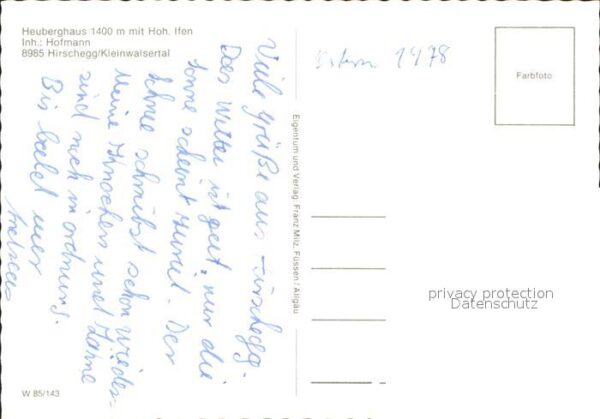 Heuberghaus 1400 m mit Hoh. Ifen
Inh.: Hofmann
8985 Hirschegg/Kleinwalsertal
Viele Grüße aus Hirschegg.
Das Wetter ist gut, nur die
Sonne scheint Der
Schnee schmilzt schon wieder.
Meine Knochen und Zähne
sind noch in ordnung.
Bis bald euer
Andreas
Eigentum und Verlag: Franz Milz, Füssen / Allgäu
Ostern 1978
Farbfoto
privacy protection
Datenschutz
W 85/143